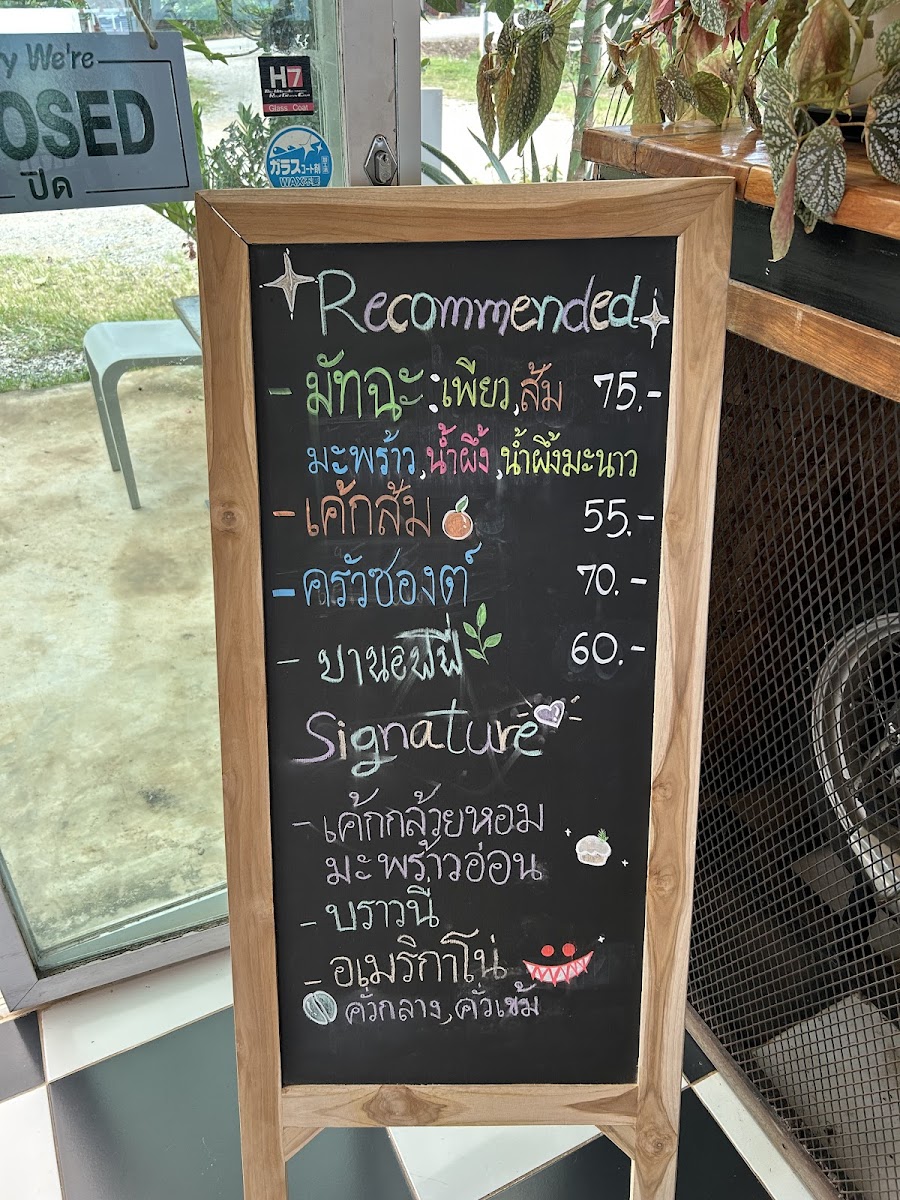 y We're
OSED
ปิด
H7
Glass Coat
ガラスコート剤
WAX不要
Recommended
- มัทฉะ : เพียว, ส้ม 75.-
มะพร้าว, น้ำผึ้ง, น้ำผึ้งมะนาว
- เค้กส้ม 55.-
- ครัวซองต์ 70.-
- บานอฟฟี่ 60.-
Signature
- เค้กกล้วยหอม
มะพร้าวอ่อน
- บราวนี่
- อเมริกาโน่
คั่วกลาง, คั่วเข้ม